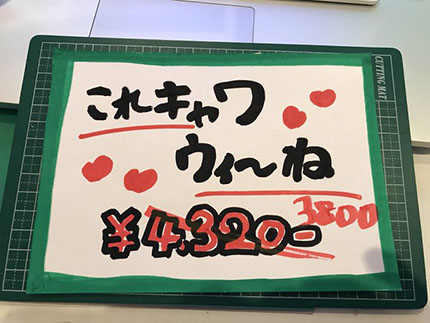 これキャワ
ウィ〜ね
3800
¥4,320-
CUTTING MAT